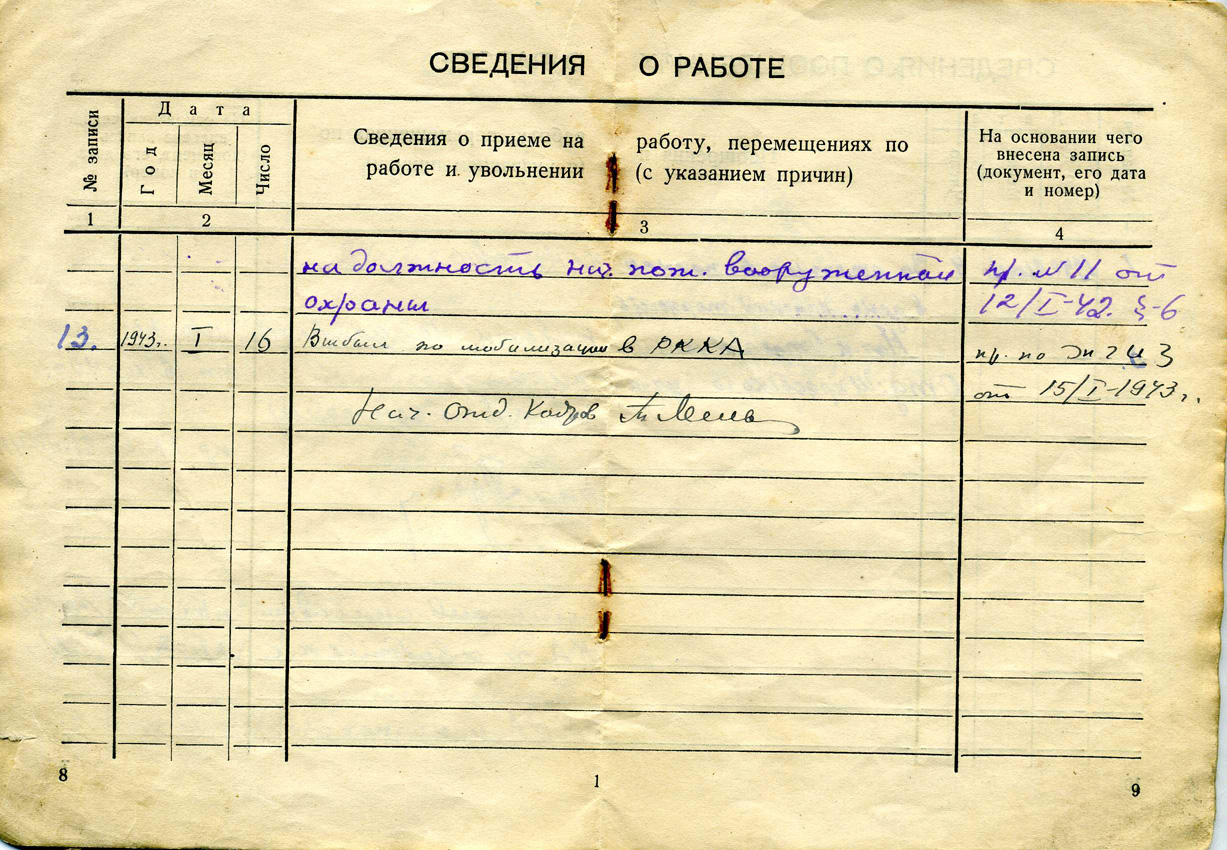 СВЕДЕНИЯ О РАБОТЕ
№ записи
Дата
Год
Месяц
Число
Сведения о приеме на работу, перемещениях по
работе и увольнении (с указанием причин)
На основании чего
внесена запись
(документ, его дата
и номер)
1 2 3 4
на должность нач. пож. вооруженной пр. №11 от
охраны 12/I-42. §-6
13. 1943г. I 16 Выбыл по мобилизации в РККА
пр. по № 3
от 15/I-1943г.
Нач. отд. Кадров
8 1 9